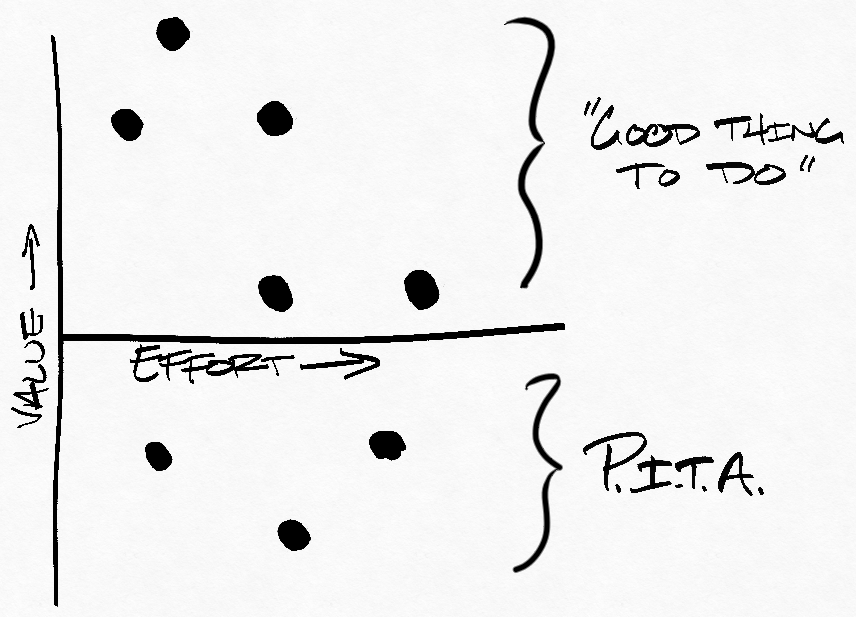 "GOOD THING
TO DO"
VALUE →
EFFORT →
P.I.T.A.